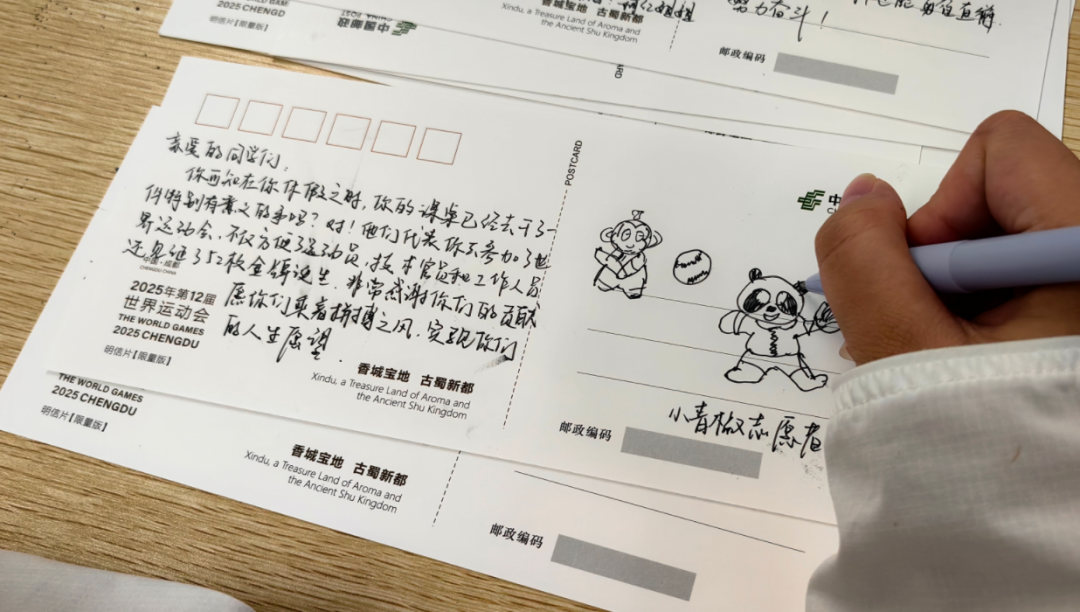 2025 CHENGD
明信片【限量版】
中国邮政
CHINA POST
香城宝地 古蜀新都
Xindu, a Treasure Land of Aroma and
the Ancient Shu Kingdom
努力奋斗！
邮政编码
POSTCARD
亲爱的同学们，
你可知在你休假之时，你的课桌已经去干了一
件特别有意义的事吗？对！他们代表你去参加了世
界运动会，不仅方便了运动员，技术官员和工作人员
还见证了52枚金牌诞生，非常感谢你们的贡献
愿你们乘着拼搏之风，实现你们
的人生愿望．
中国·成都
CHENGDU CHINA
2025年第12届
世界运动会
THE WORLD GAMES
2025 CHENGDU
明信片【限量版】
香城宝地 古蜀新都
Xindu, a Treasure Land of Aroma and
the Ancient Shu Kingdom
中
小青椒志愿者
邮政编码
THE WORLD GAMES
2025 CHENGDU
明信片【限量版】
香城宝地 古蜀新都
Xindu, a Treasure Land of Aroma and
the Ancient Shu Kingdom
邮政编码